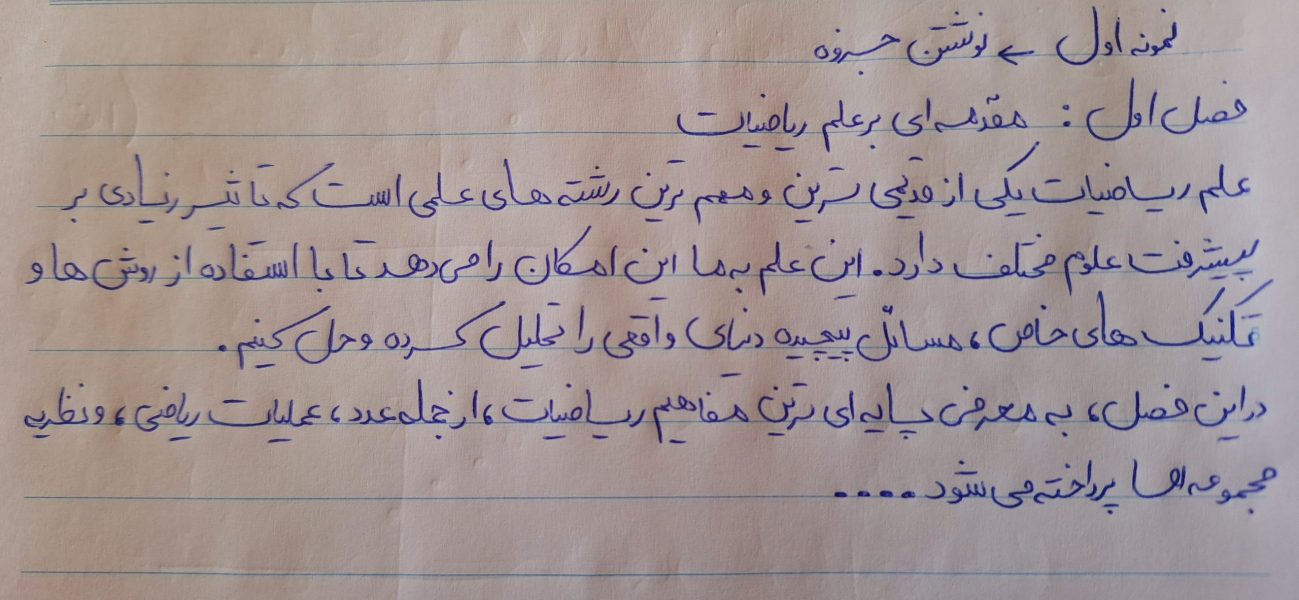 نمونه اول ← نوشتن جزوه
فصل اول : مقدمه ای بر علم ریاضیات
علم ریاضیات یکی از قدیمی ترین و مهم ترین رشته های علمی است که تاثیر زیادی بر
پیشرفت علوم مختلف دارد. این علم به ما این امکان را می دهد تا با استفاده از روش ها و
تکنیک های خاص، مسائل پیچیده دنیای واقعی را تحلیل کرده و حل کنیم.
در این فصل، به معرفی پایه ای ترین مفاهیم ریاضیات، از جمله عدد، عملیات ریاضی، و نظریه
مجموعه ها پرداخته می شود ....